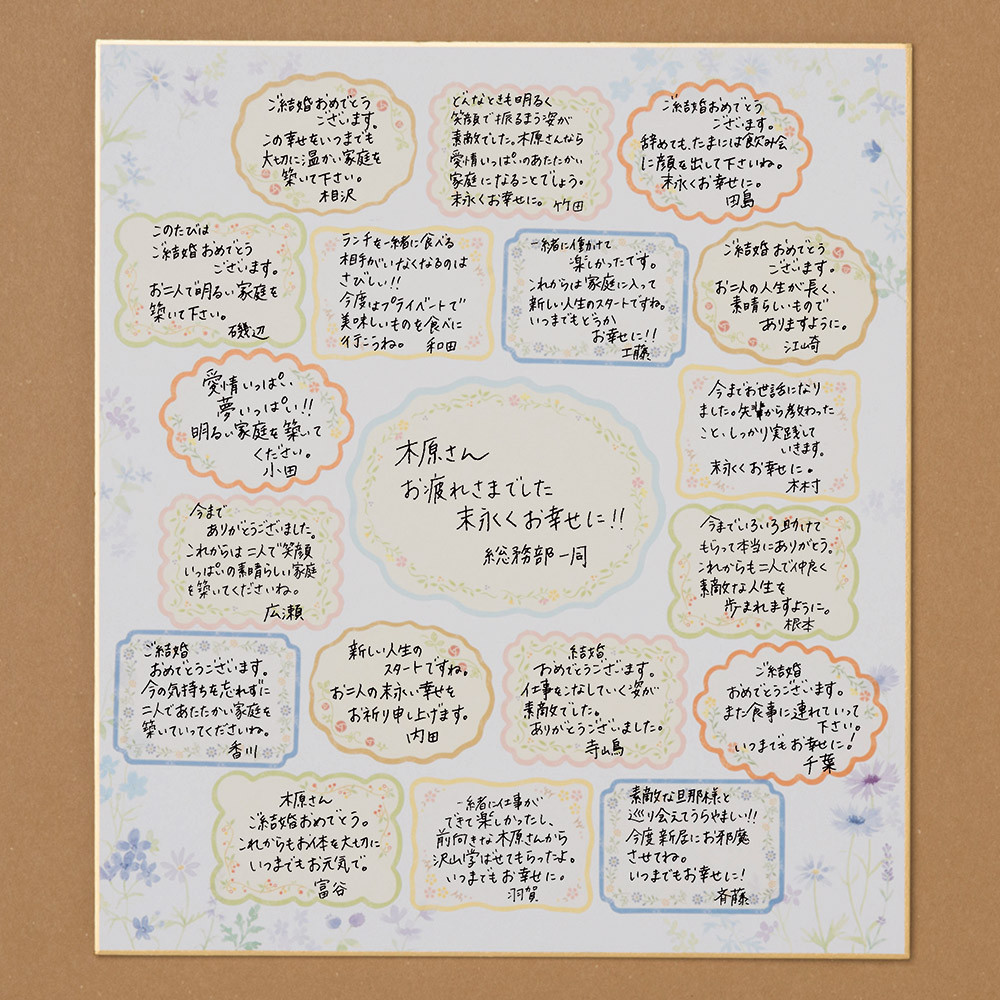 ご結婚おめでとう
ございます。
この幸せをいつまでも
大切に温かい家庭を
築いて下さい。
相沢
どんなときも明るく
笑顔で振るまう姿が
素敵でした。木原さんなら
愛情いっぱいのあたたかい
家庭になることでしょう。
末永くお幸せに。竹田
ご結婚おめでとう
ございます。
辞めても、たまには飲み会
に顔を出して下さいね。
末永くお幸せに。
田島
このたびは
ご結婚おめでとう
ございます。
お二人で明るい家庭を
築いて下さい。
磯辺
ランチを一緒に食べる
相手がいなくなるのは
さびしい!!
今度はプライベートで
美味しいものを食べに
行こうね。 和田
一緒に働けて
楽しかったです。
これからは家庭に入って
新しい人生のスタートですね。
いつまでもどうか
お幸せに!!
工藤
ご結婚おめでとう
ございます。
お二人の人生が長く、
素晴らしいもので
ありますように。
江崎
愛情いっぱい
夢いっぱい!!
明るい家庭を築いて
ください。
小田
木原さん
お疲れさまでした
末永くお幸せに!!
総務部一同
今までお世話になり
ました。先輩から教わった
こと、しっかり実践して
いきます。
末永くお幸せに。
木村
今まで
ありがとうございました。
これからは二人で笑顔
いっぱいの素晴らしい家庭
を築いてくださいね。
広瀬
今までいろいろ助けて
もらって本当にありがとう。
これからも二人で仲良く
素敵な人生を
歩まれますように。
根本
ご結婚
おめでとうございます。
今の気持ちを忘れずに
二人であたたかい家庭を
築いていってくださいね。
香川
新しい人生の
スタートですね。
お二人の末永い幸せを
お祈り申し上げます。
内田
結婚
おめでとうございます。
仕事をこなしていく姿が
素敵でした。
ありがとうございました。
寺嶋
ご結婚
おめでとうございます。
また食事に連れていって
下さい。
いつまでもお幸せに!
千葉
木原さん
ご結婚おめでとう。
これからもお体を大切に
いつまでもお元気で。
富谷
一緒に仕事が
できて楽しかったし、
前向きな木原さんから
沢山学ばせてもらったよ。
いつまでもお幸せに。
羽賀
素敵な旦那様と
巡り会えてうらやましい!!
今度新居にお邪魔
させてね。
いつまでもお幸せに!
斉藤